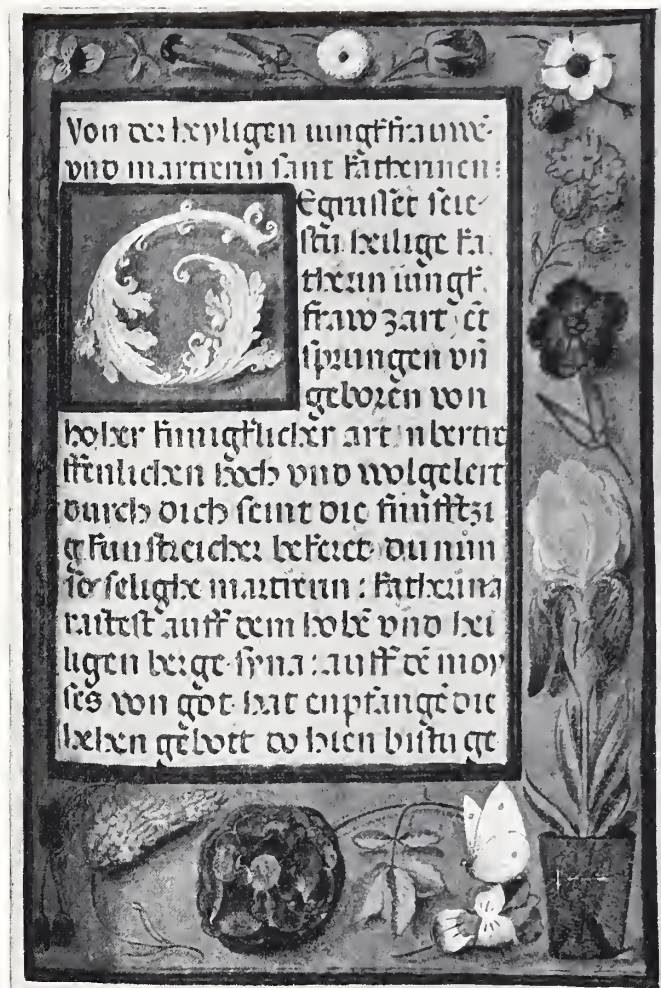 Von der heyligen iungkfrauwē
vnd martrerin sant katherinen:
GEgrusset seie
stu heilige ka
therin iungk
fraw zart, et
sprungen vñ
geboren von
hoher kunigklicher art: nbertre
ffenlichen hoch vnd wolgelert
durch dich seint die funfftzi
g kunstreicher bekeret· du nun
so selighe martrerin: katherina
rastest auff dem hohē vnd hei
ligen berge· syna: auff dē moy
ses von got· hat enpfangē die
hehen gebott do hien bistu ge